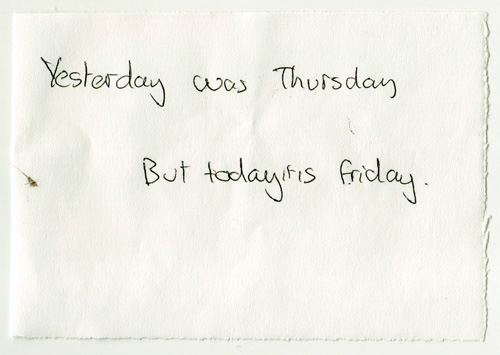 Yesterday was Thursday
But today it is friday.